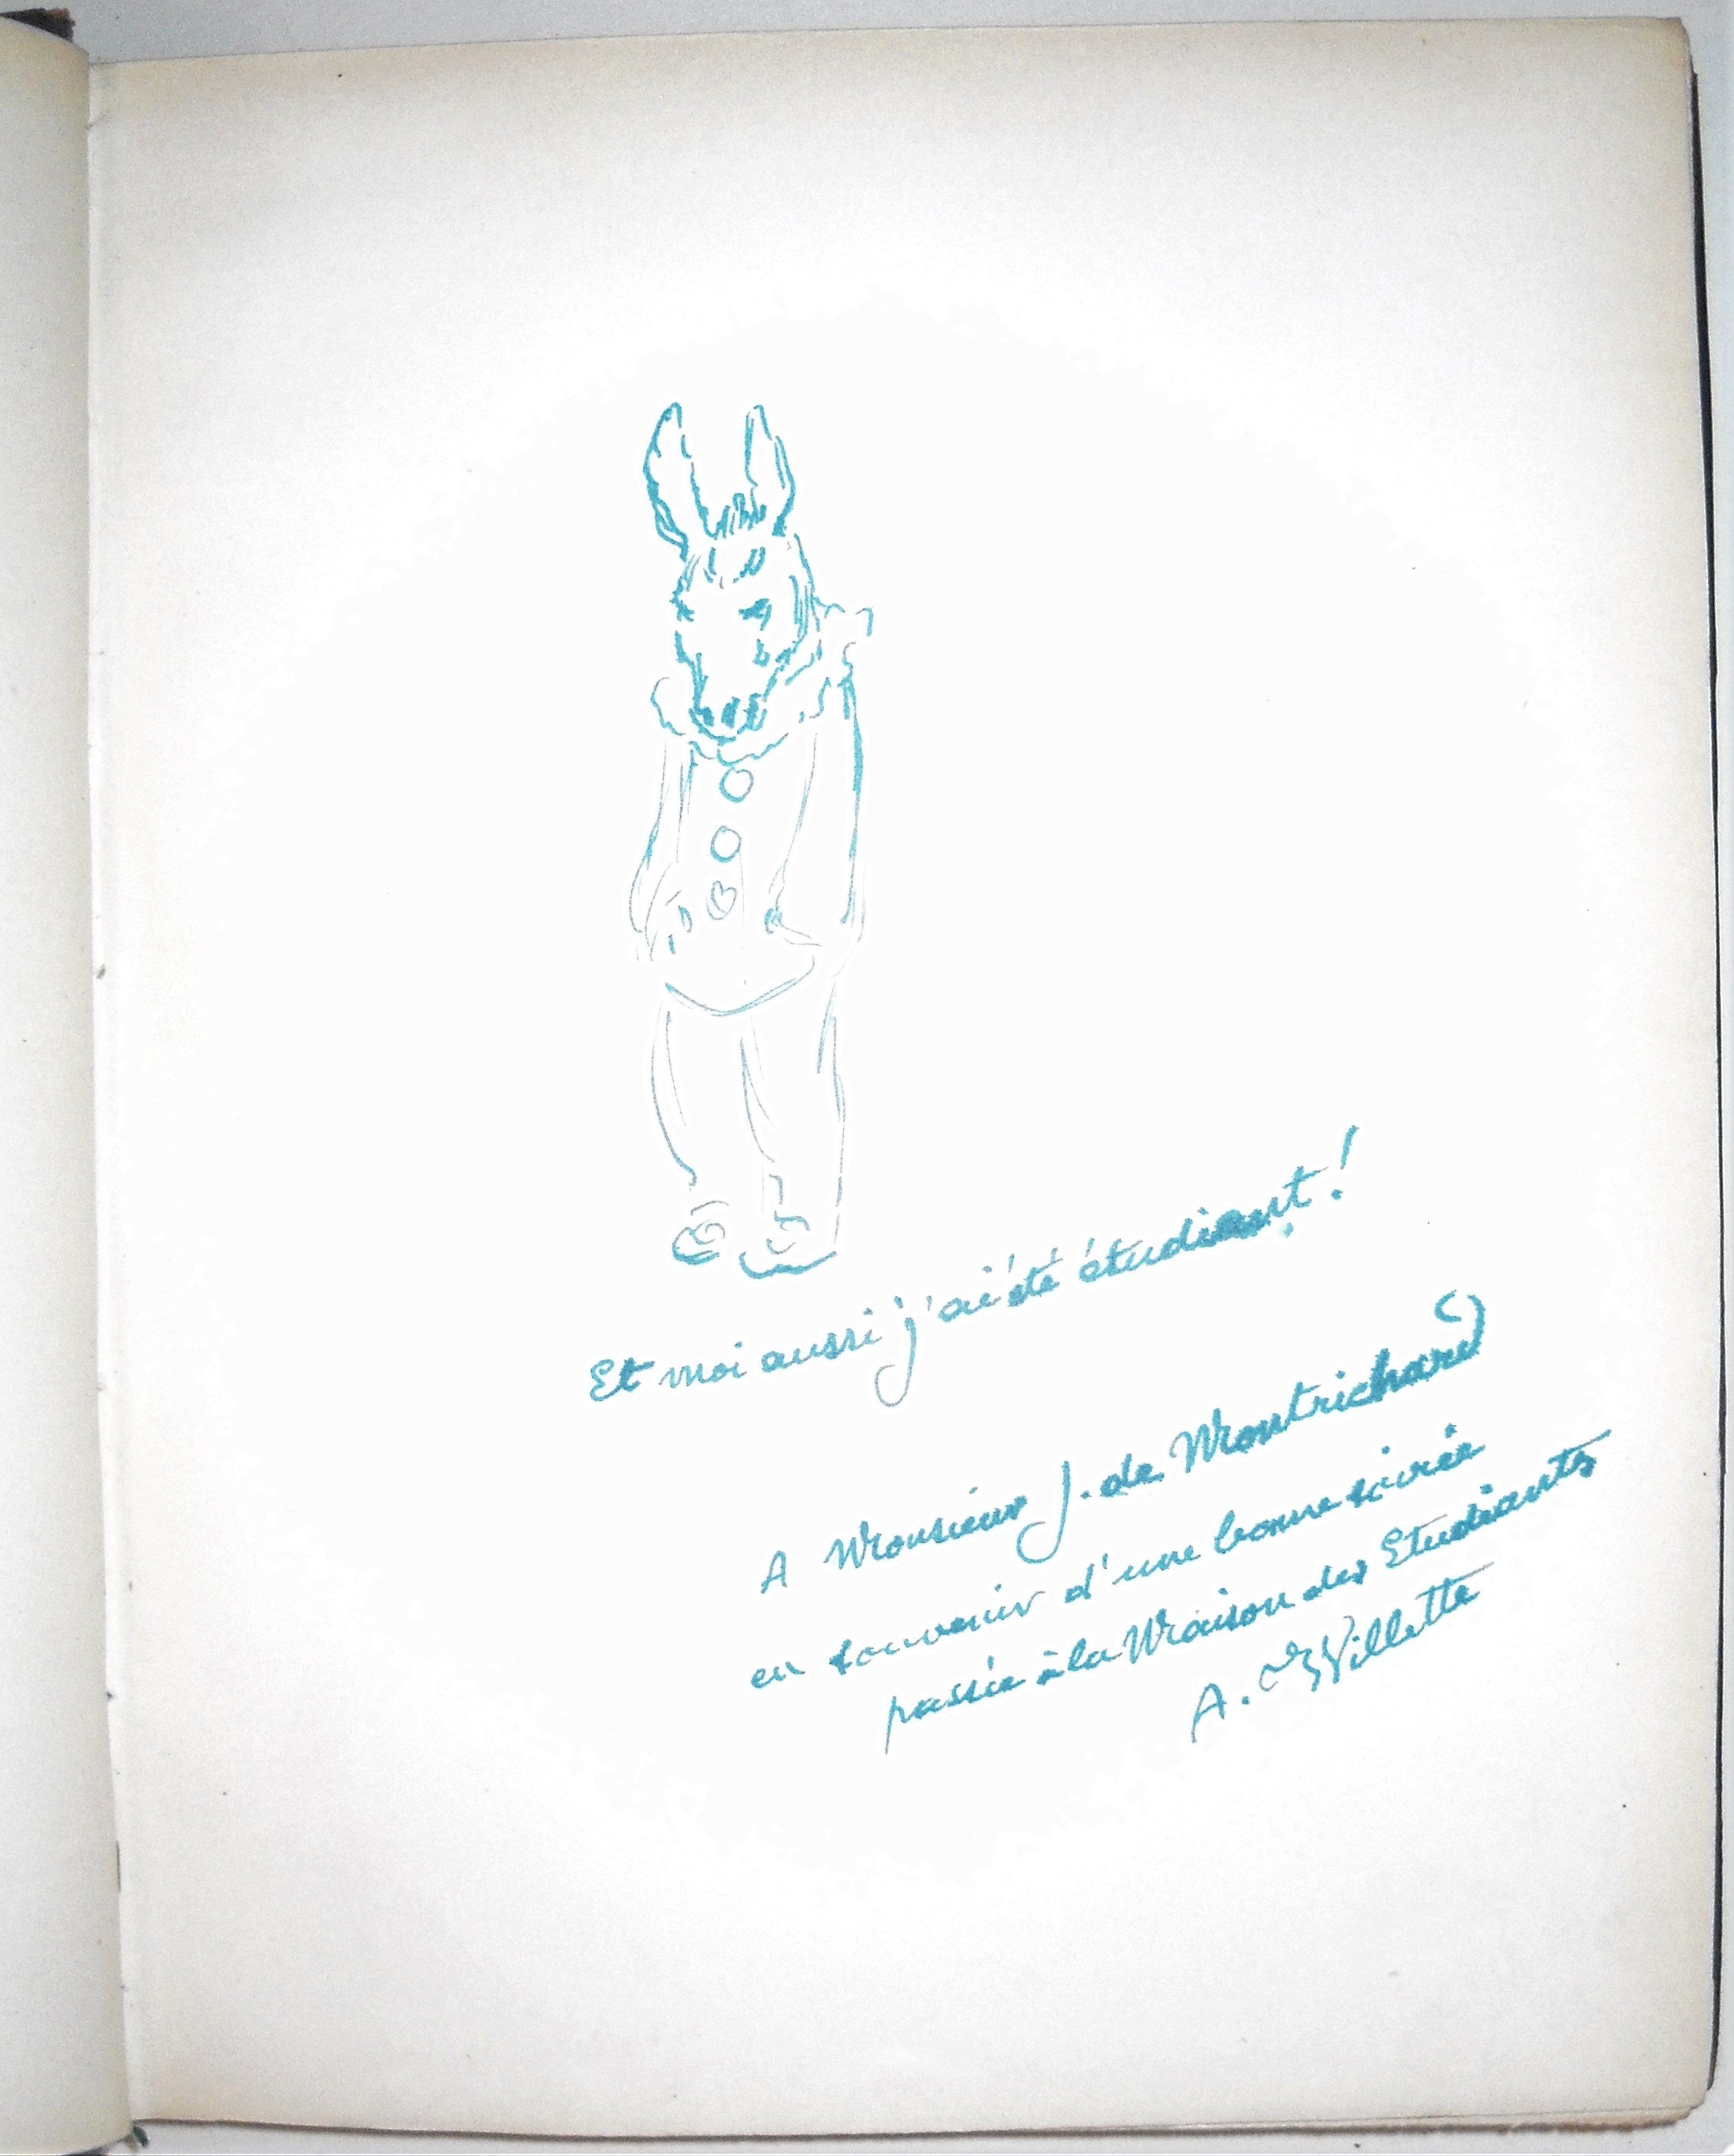 Et moi aussi j'ai été étudiant !
A Monsieur J. de Montrichard
en souvenir d'une bonne soirée
passée à la Maison des Etudiants
A. Willette